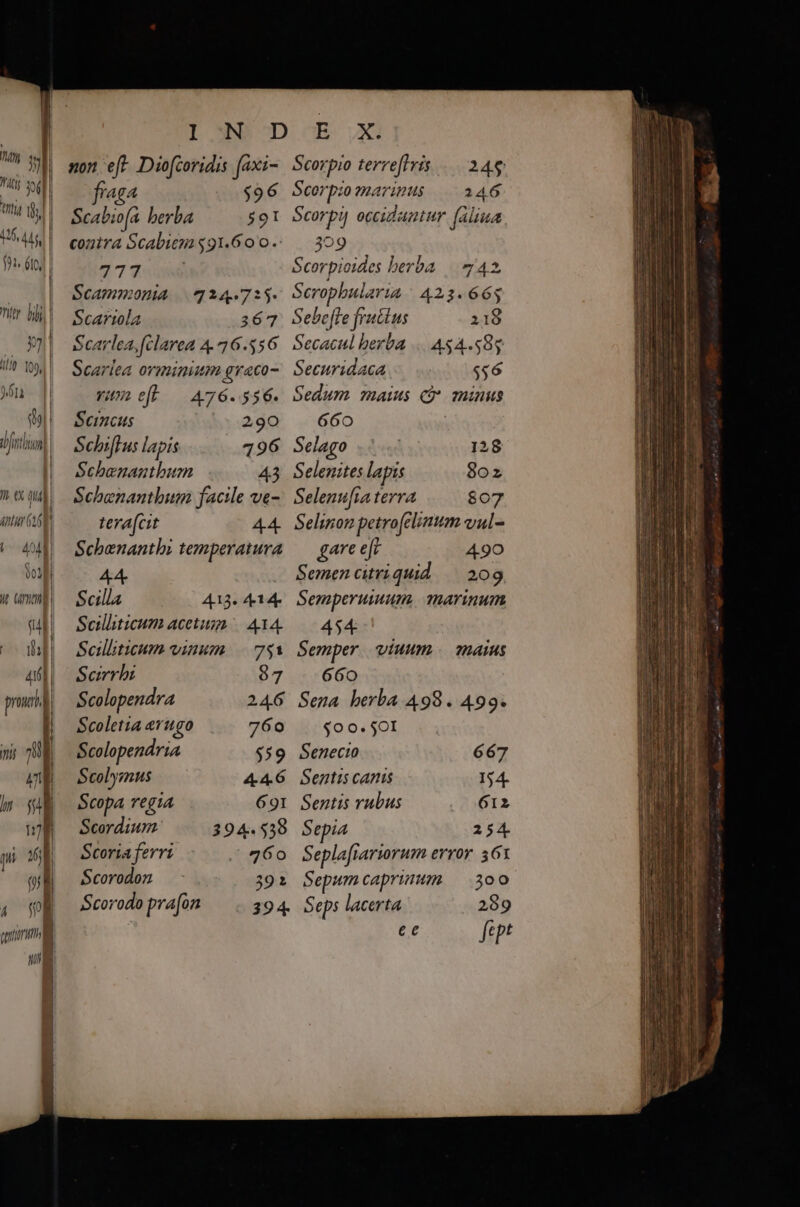 INDEX.
non eſt Dioſcoridis ſaxi-
fraga 596
Scabioſa herba 591
contra Scabiem 591.600.
777
Scammonia 724.725.
Scariola 367
Scarlea, ſclarea 476.556
Scarlea orminium græco-
rum eſt 476.556.
Scincus 290
Schiſtus lapis 796
Schœnanthum 43
Schœnanthum facile ve-
teraſcit 44
Schœnanthi temperatura
44
Scilla 413.414.
Scilliticum acetum 414
Scilliticum vinum 751
Scirrhi 87
Scolopendra 246
Scoletia ærugo 760
Scolopendria 559
Scolymus 446
Scopa regia 691
Scordium 394.538
Scoria ferri 760
Scorodon 392
Scorodo praſon 394.
Scorpio terreſtris 245
Scorpio marinus 246
Scorpij occiduntur ſaliua
309
Scorpioides herba 742
Scrophularia 423.665
Sebeſte fructus 218
Secacul herba 454.585
Securidaca 556
Sedum maius & minus
660
Selago 128
Selenites lapis 802
Selenuſia terra 807
Selinon petroſelinum vul-
gare eſt 490
Semen citri quid 209
Semperuiuum marinum
454
Semper viuum maius
660
Sena herba 498. 499.
500.501
Senecio 667
Sentis canis 154
Sentis rubus 612
Sepia 254
Seplaſiariorum error 361
Sepum caprinum 300
Seps lacerta 289
ee ſept